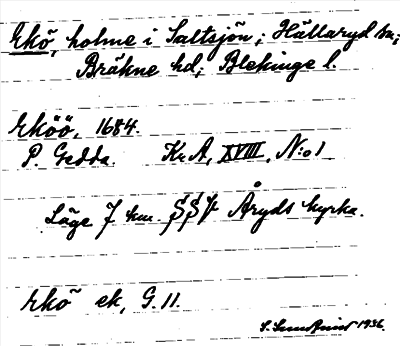 Ekö, holme i Saltsjön; Hällaryd sn;
Bräkne hd; Blekinge l.
Eköö, 1684.
P. Gedda. Kr. A, XVIII, N:o 1
Läge 7 km. SSV Åryds kyrka.
Ekö ek, G. 11.
1936.